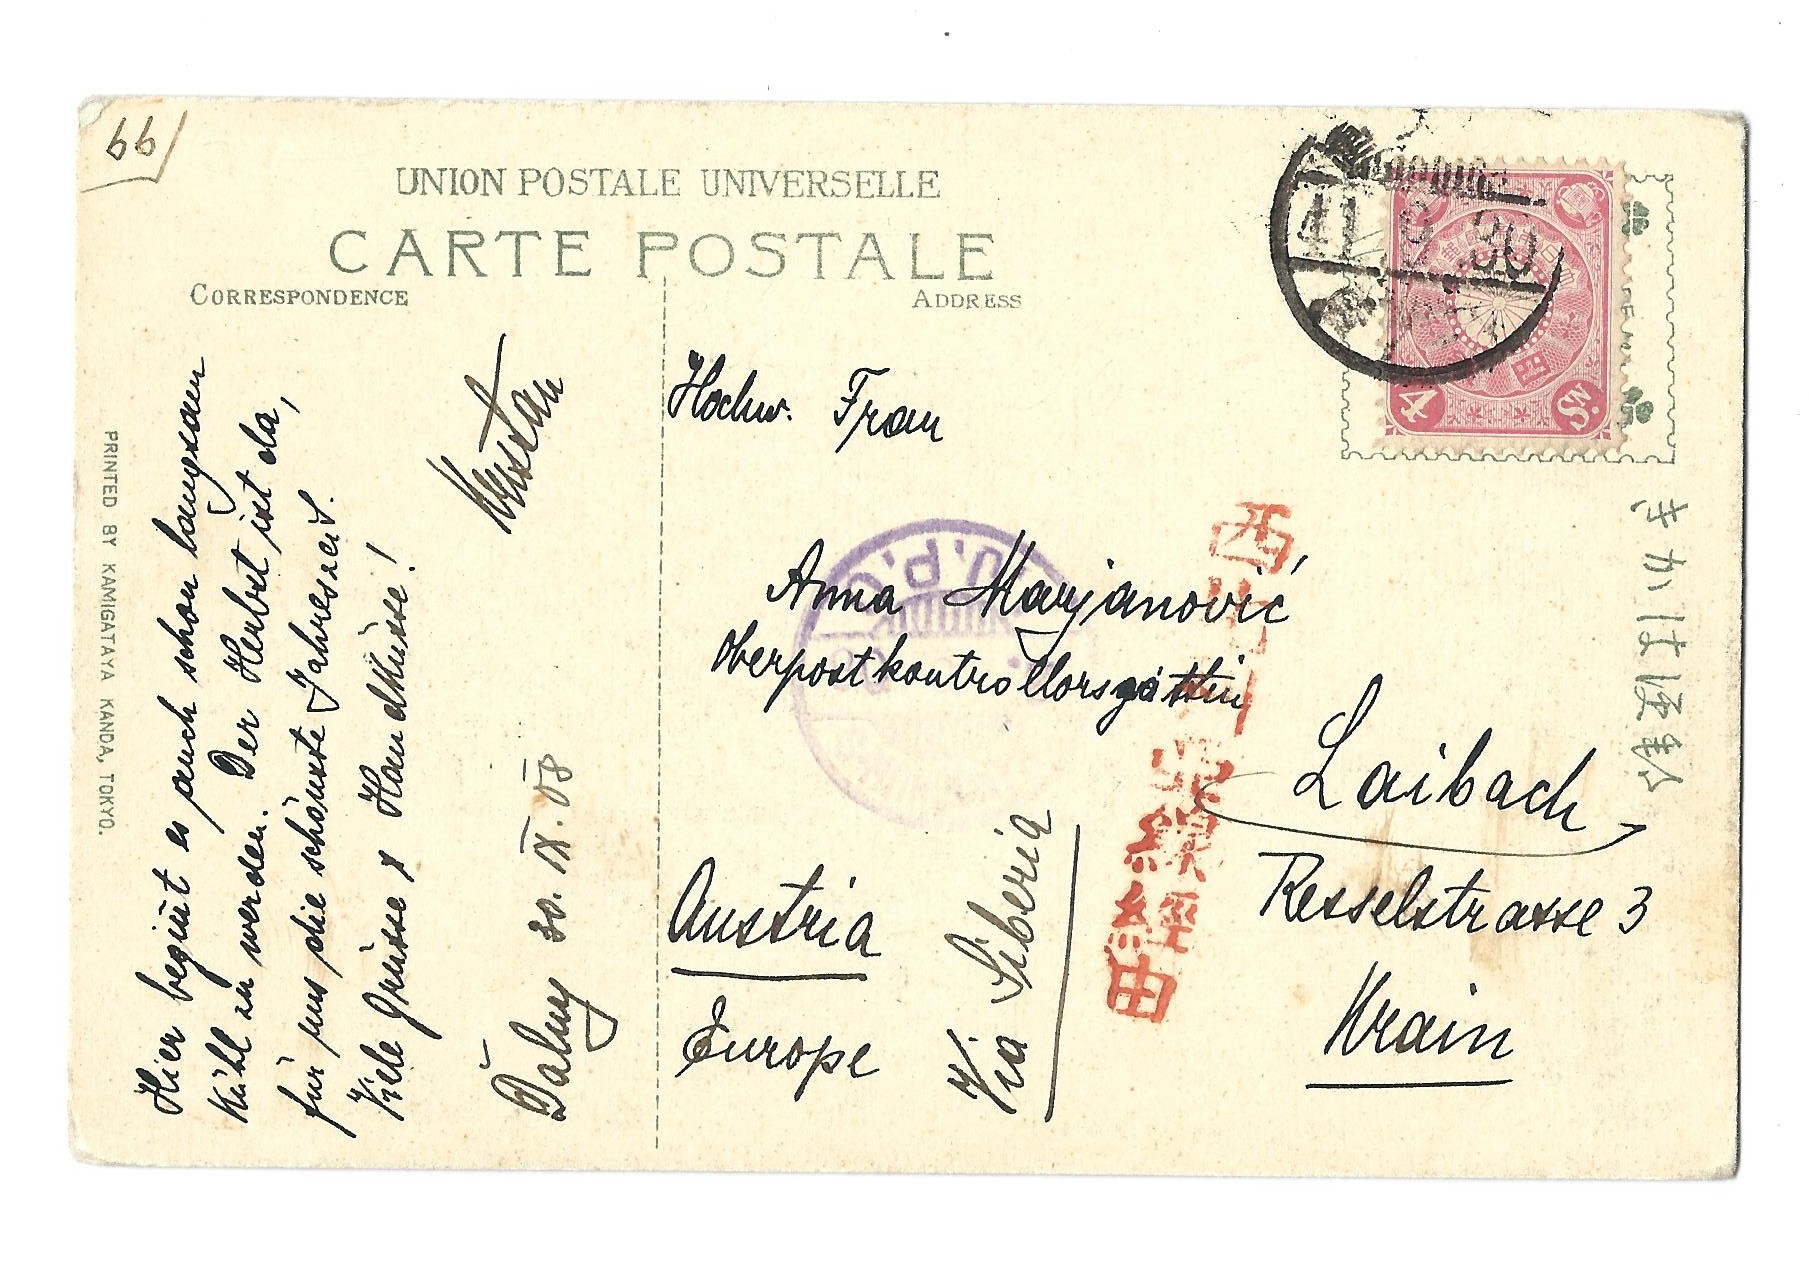 66
UNION POSTALE UNIVERSELLE
CARTE POSTALE
CORRESPONDENCE
ADDRESS
Hier begin̄t es auch schon langsam
kühl zu werden. Der Herbst ist da,
für uns die schönste Jahreszeit.
Viele Grüsse & Handküsse!
Dalny 30. IX. 08
Hochw. Frau
Anna Marjanović
Oberpostkontrollorsgattin
Laibach
Resselstrasse 3
Krain
Austria
Europe
Via Siberia
41 9 30
4 Sn.
きかは便郵
PRINTED BY KAMIGATAYA KANDA, TOKYO.